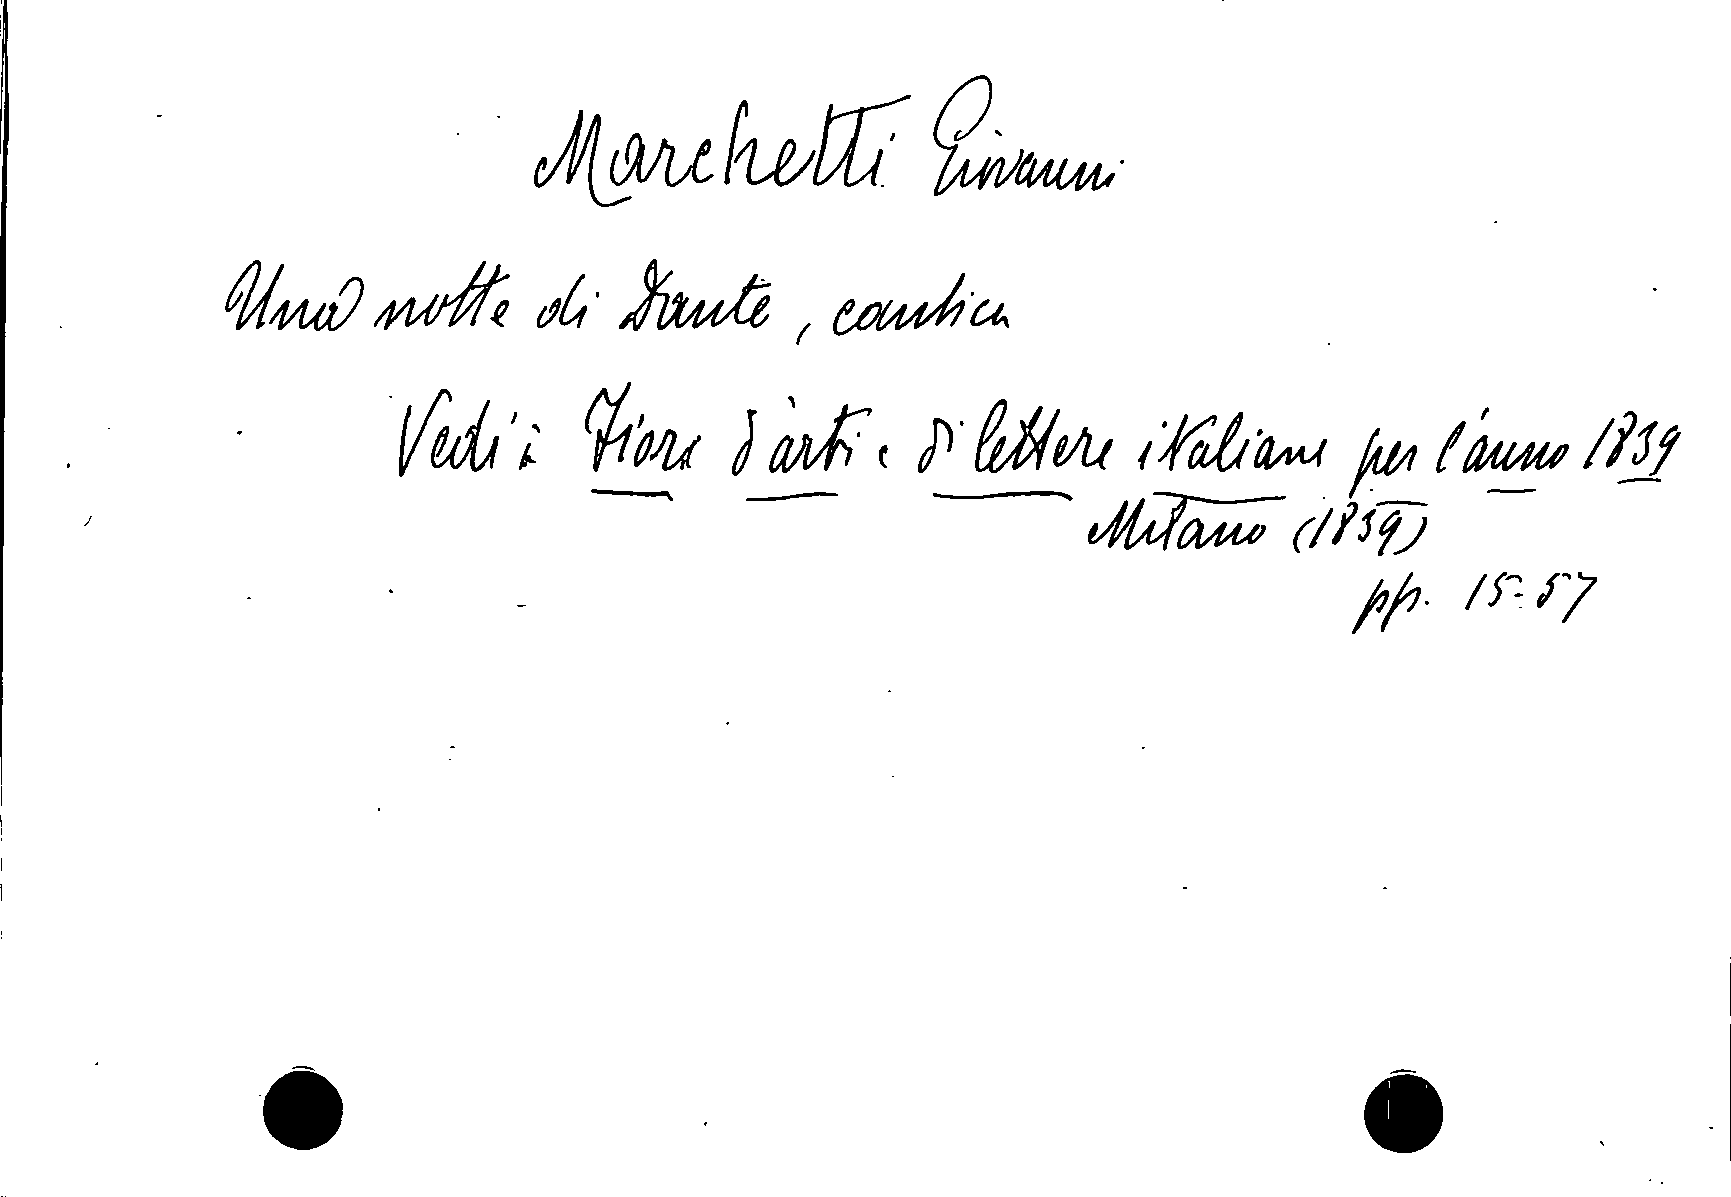 Marchetti Giovanni
Una notte di Dante, cantica
Vedi: Fiore d'arti e di lettere italiane per l'anno 1839
Milano (1839)
pp. 15-57